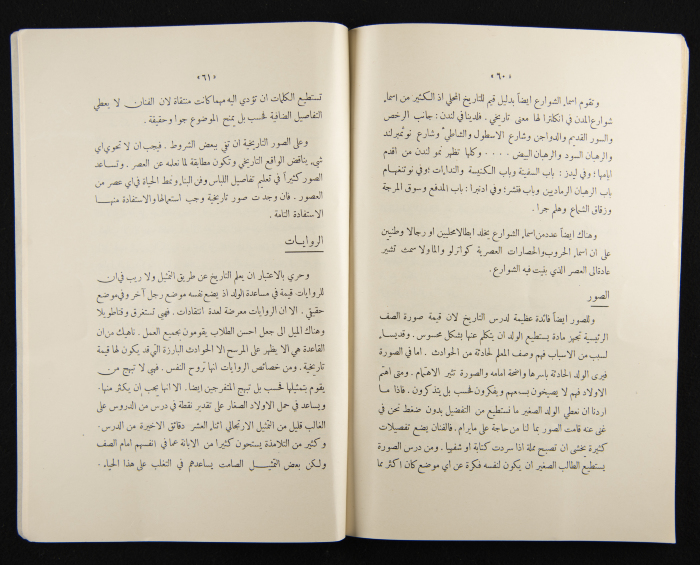 «٦٠»
وتقوم اسماء الشوارع ايضاً بدليل قيم للتاريخ المحلي اذ الكثير من اسماء
شوارع المدن في انكلترا لها معنى تاريخي . فلدينا في لندن : جانب الرخص
والسور القديم والدواجن وشارع الاسطول والشاطيء وشارع نوثمبرلند
والرهبان السود والرهبان البيض . . . . وكلها تظهر نمو لندن من اقدم
ايامها ؛ وفي ليدز : باب السفينة وباب الكنيسة والندايات ؛ وفي نوتنغهام
باب الرهبان الرماديين وباب فلتشر ؛ وفي ادنبرا : باب المدفع وسوق المرجة
وزقاق الشماع وهلم جرا .
وهناك ايضاً عدد من اسماء الشوارع يخلد ابطالا محليين او رجالا وطنيين
على ان اسماء الحروب والحصارات العصرية كواترلو والما ولاسمث تشير
عادة الى العصر الذي بنيت فيه الشوارع .
الصور
وللصور ايضاً فائدة عظيمة لدرس التاريخ لان قيمة صورة الصف
الرئيسية تجهيز مادة يستطيع الولد ان يتكلم عنها بشكل محسوس . وقد يساء
لسبب من الاسباب فهم وصف المعلم لحادثة من الحوادث . اما في الصورة
فيرى الولد الحادثة باسرها واضحة امامه والصورة تثير الاهتمام . ومتى اهتم
الاولاد فهم لا يصيخون بسمعهم ويفكرون فحسب بل يتذكرون . فاذا ما
اردنا ان نعطي الولد الصغير ما نستطيع من التفضيل بدون ضغط نحن في
غنى عنه قامت الصور بما لنا من حاجة على ما يرام . فالفنان يضع تفصيلات
كثيرة يخشى ان تصبح مملة اذا سردت كتابة او شفهياً . ومن درس الصورة
يستطيع الطالب الصغير ان يكون لنفسه فكرة عن اي موضع كان اكثر مما
«٦١»
تستطيع الكلمات ان تؤدي اليه مهما كانت منتقاة لان الفنان لا يعطي
التفاصيل الضافية فحسب بل يمنح الموضوع جوا وحقيقة .
وعلى الصور التاريخية ان تفي ببعض الشروط . فيجب ان لا تحوي اي
شيء يناقض الواقع التاريخي وتكون مطابقة لما نعلمه عن العصر . وتساعد
الصور كثيراً في تعليم تفاصيل اللباس وفن البناء ونمط الحياة في اي عصر من
العصور . فان وجدت صور تاريخية وجب استعمالها والاستفادة منها
الاستفادة التامة .
الروايات
وحري بالاعتبار ان يعلم التاريخ عن طريق التمثيل ولا ريب في ان
للروايات قيمة في مساعدة الولد اذ يضع نفسه موضع رجل آخر وفي موضع
حقيقي . الا ان الروايات معرضة لعدة انتقادات . فهي تستغرق وقتا طويلا
وهناك الميل الى جعل احسن الطلاب يقومون بجميع العمل . ناهيك من ان
القاعدة هي الا يظهر على المرسح الا الحوادث البارزة التي قد يكون لها قيمة
تاريخية . ومن خصائص الروايات انها تروح النفس . فهي لا تبهج من
يقوم بتمثيلها فحسب بل تبهج المتفرجين ايضا . الا انها يجب ان يكثر منها .
ويساعد في حمل الاولاد الصغار على تقدير نقطة في درس من الدروس على
الغالب قليل من التمثيل الارتجالي اثناء العشر دقائق الاخيرة من الدرس .
وكثير من التلامذة يستحون كثيرا من الابانة عما في انفسهم امام الصف
ولكن بعض التمثيل الصامت يساعدهم في التغلب على هذا الحياء .